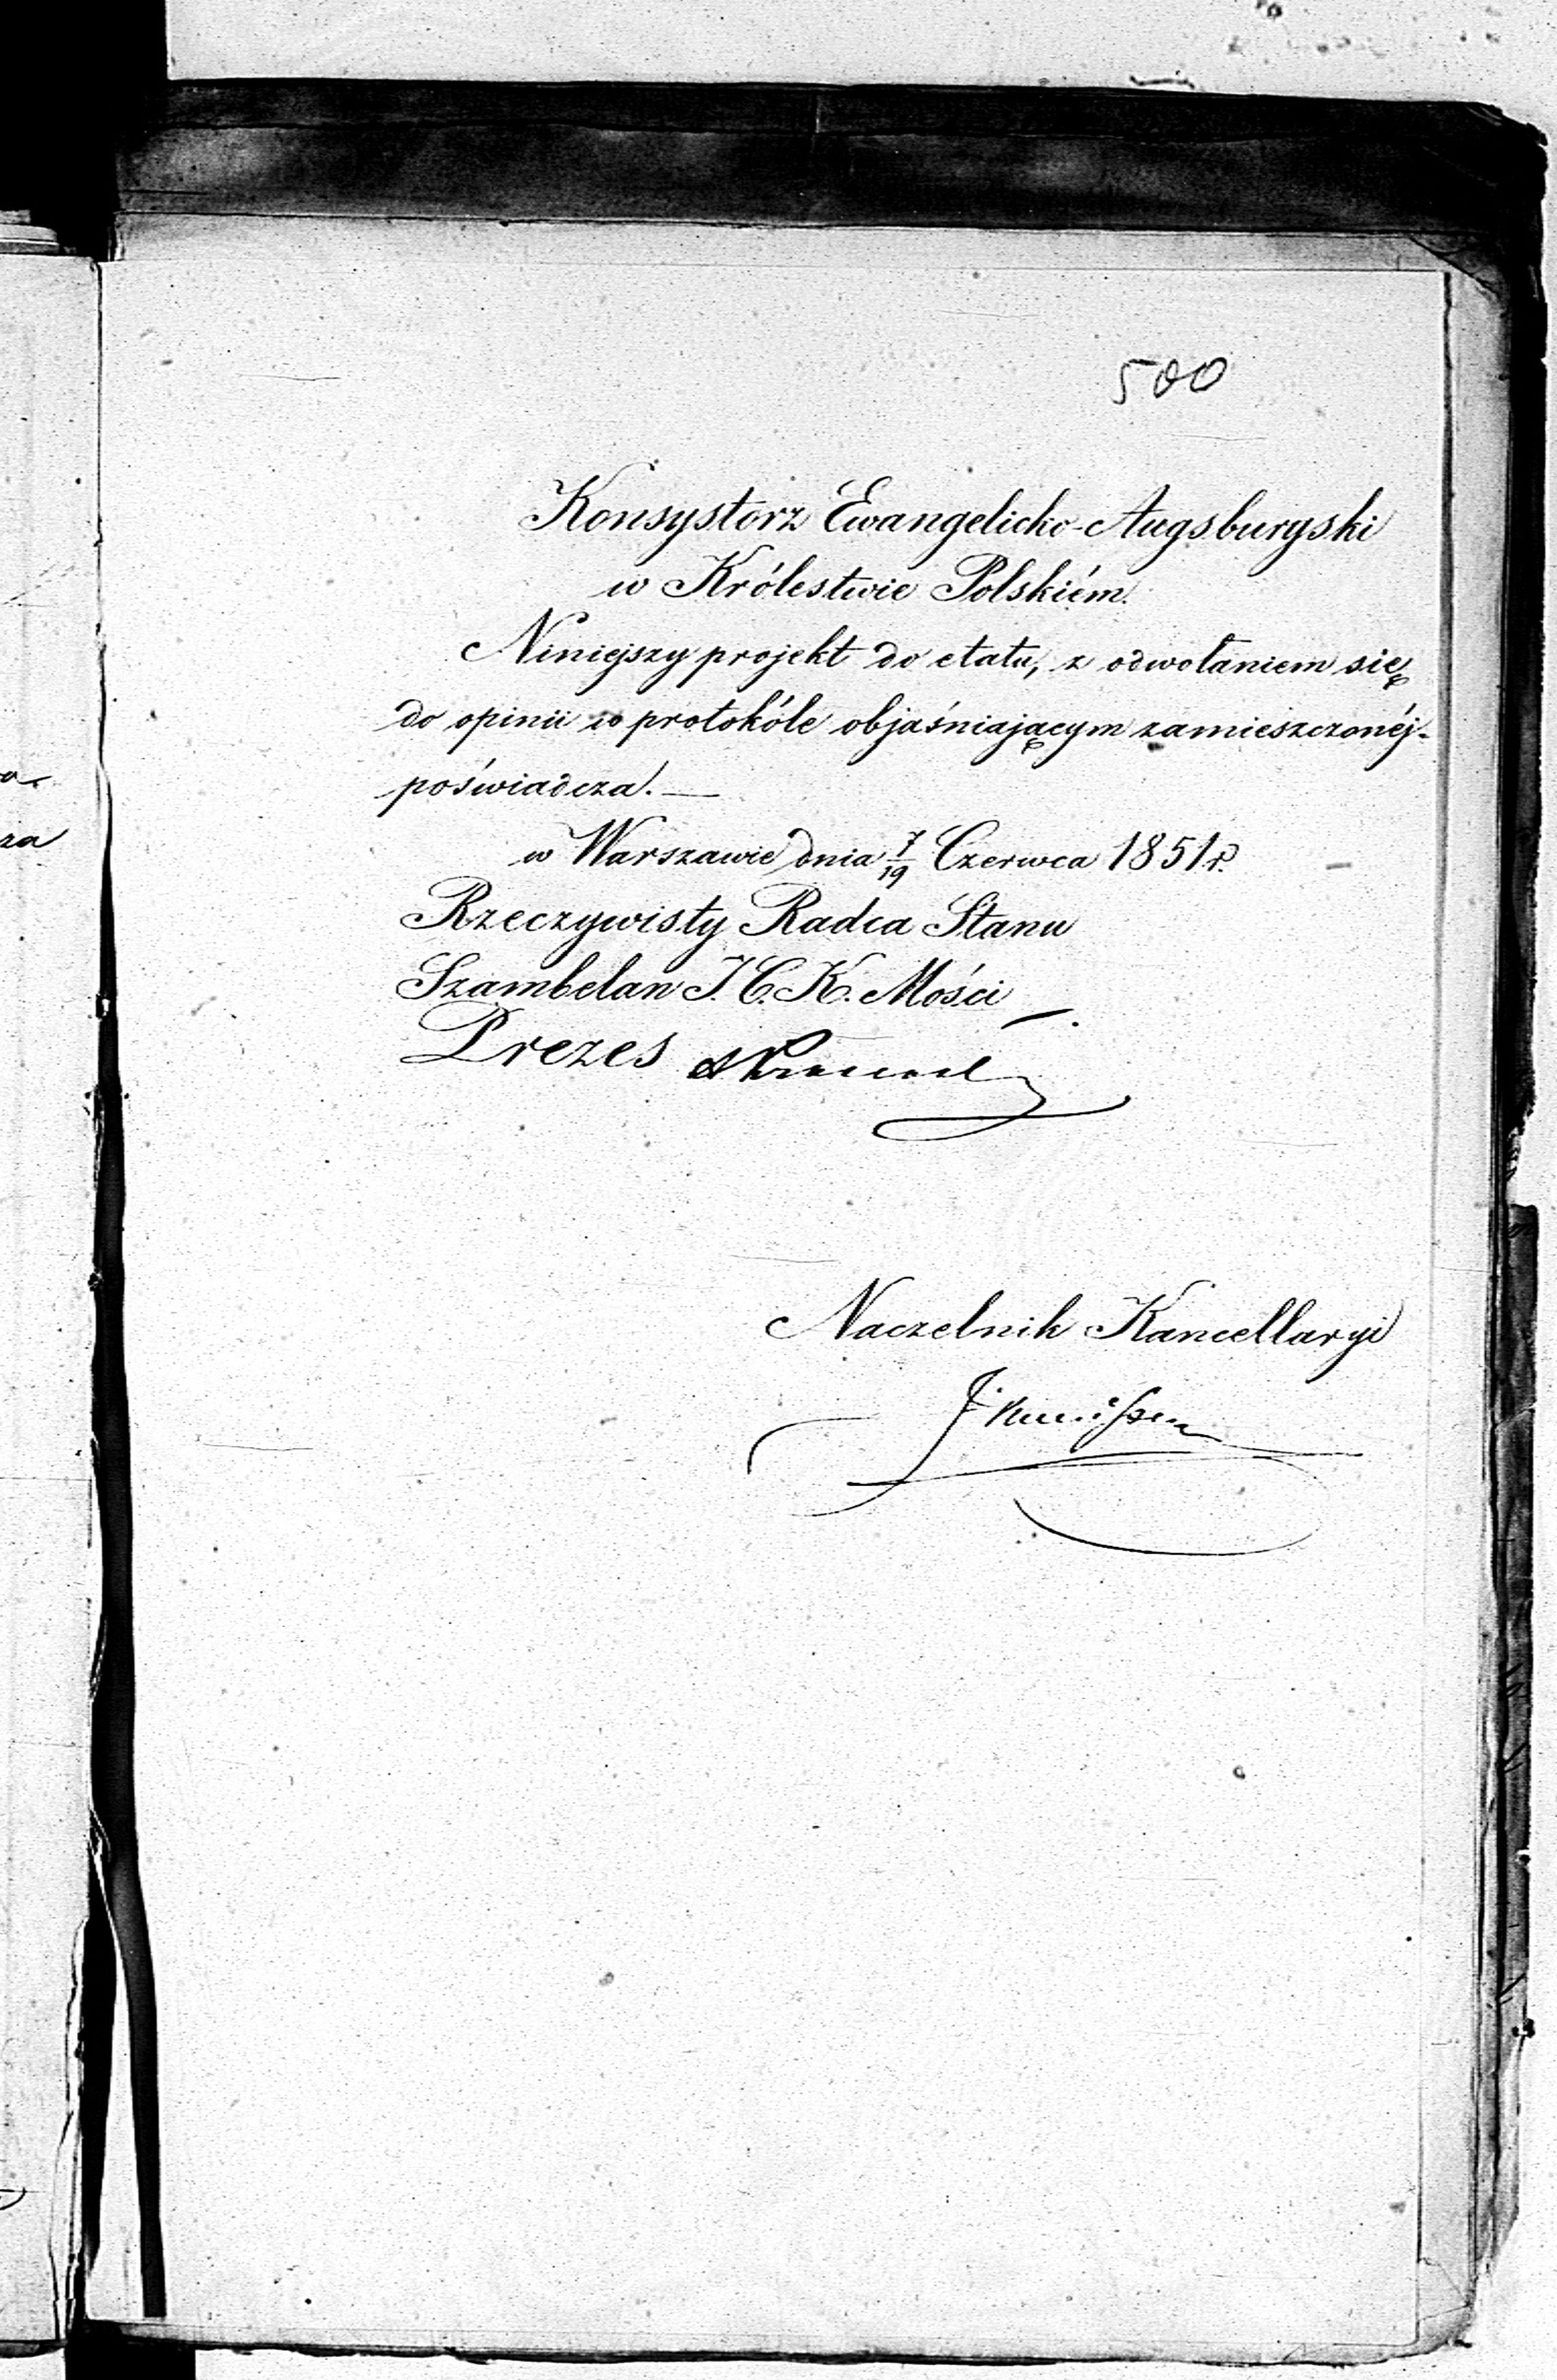 500
Konsystorz Ewangelicko-Augsburgski
w Królestwie Polskiém.
Niniejszy projekt do etatu, z odwołaniem się
do opinii w protokóle objaśniającym zamieszczonéj-
poświadcza. —
w Warszawie dnia 7/19 Czerwca 1851 r.
Rzeczywisty Radca Stanu
Szambelan J. C. K. Mości
Prezes
Naczelnik Kancellaryi